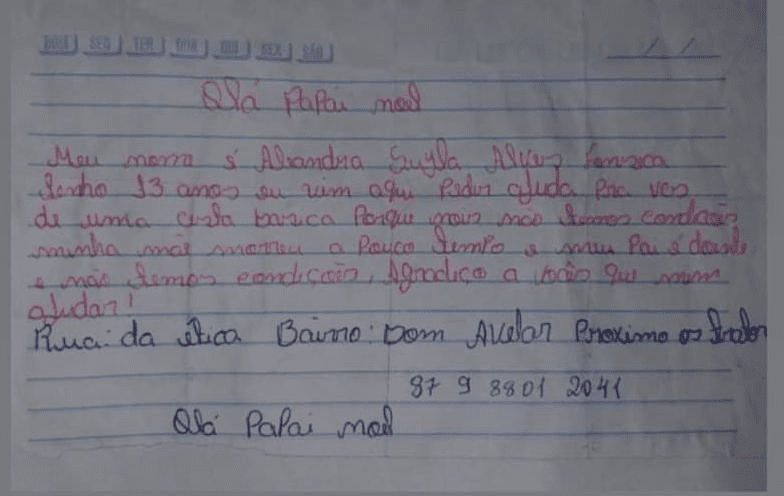 DOM SEG TER QUA QUI SEX SÁB
/ /
Olá PaPai noel
Meu nome é Alexandra Suylla Alves Fonseca
Tenho 13 anos eu vim aqui Pedir ajuda Pra vcs
de uma cesta basica Porque nois não temos condicão
minha mãe morreu a Pouco tempo e meu Pai é doente
e não temos condicão, Agradeço a vocês que
ajudar!
Rua: da ética Bairro: Dom Avelar Proximo os
87 9 8801 2041
Olá PaPai noel